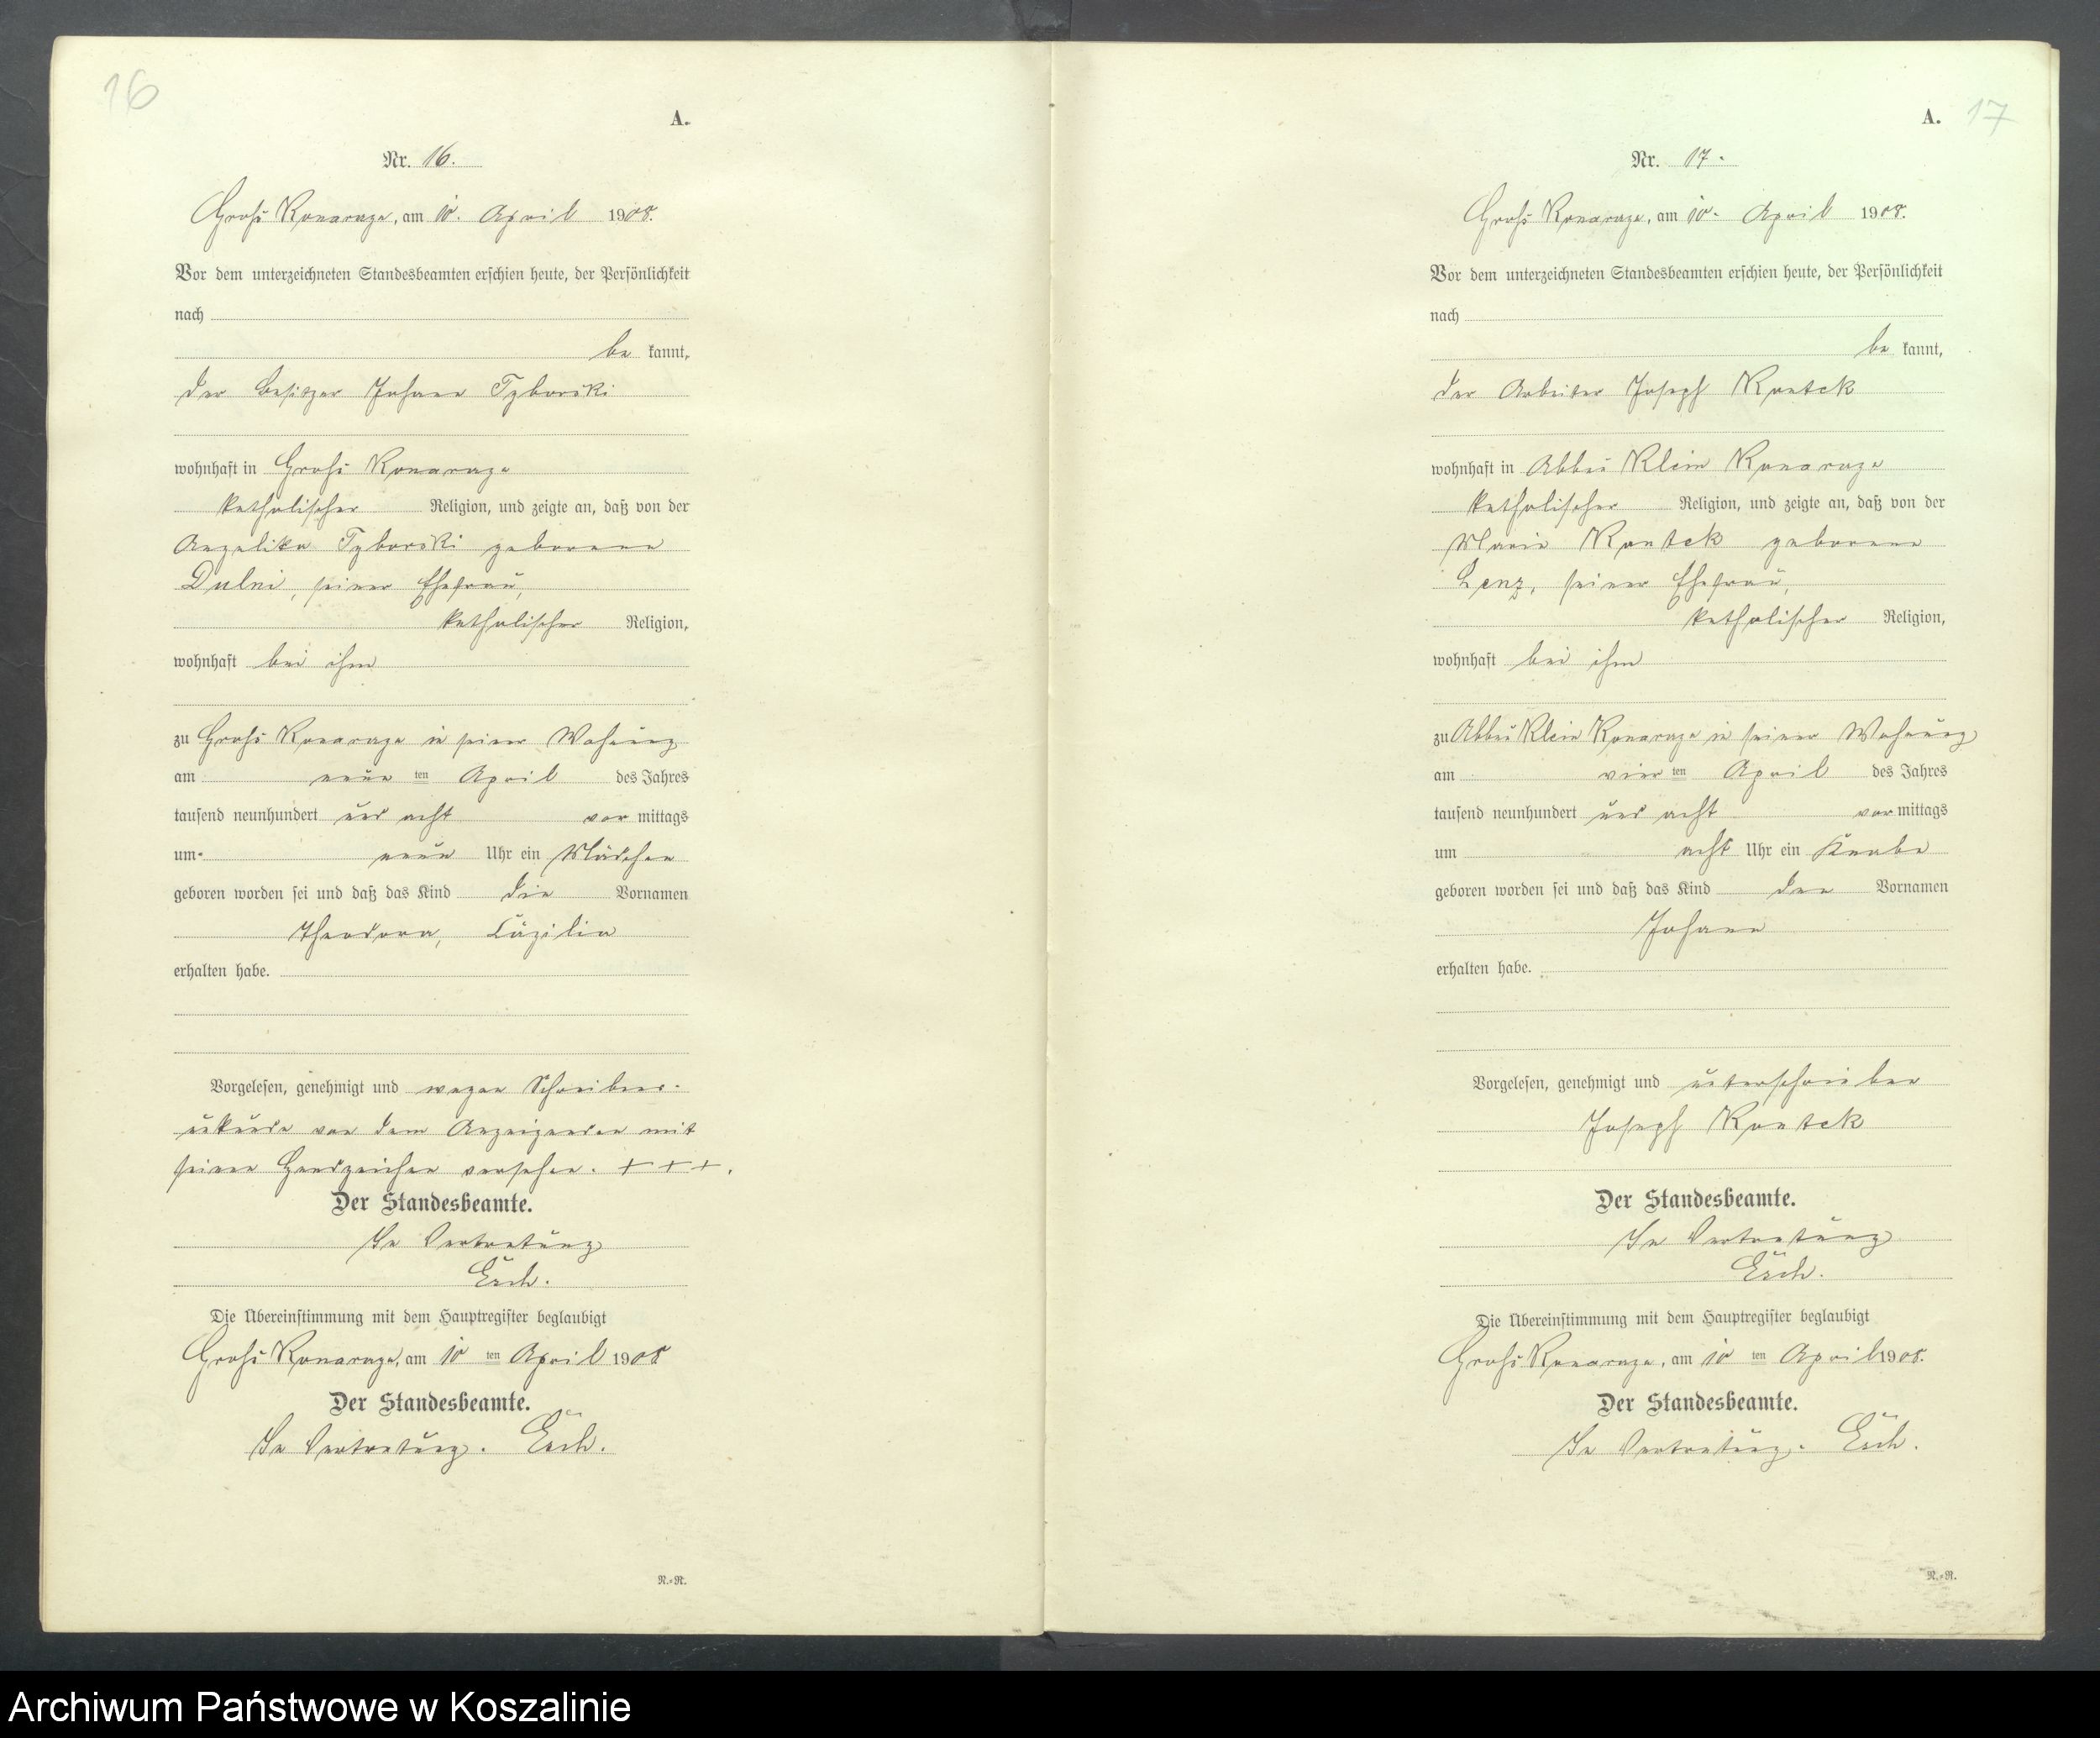 16
A.
Nr. 16.
Groß Konarzyn, am 10. April 1908.
Vor dem unterzeichneten Standesbeamten erschien heute, der Persönlichkeit
nach
be kannt,
der Besitzer Johann Tyborski
wohnhaft in Groß Konarzyn
katholischer Religion, und zeigte an, daß von der
Angelika Tyborski geborene
Dulni, seiner Ehefrau,
katholischer Religion,
wohnhaft bei ihm
zu Groß Konarzyn in seiner Wohnung
am neun ten April des Jahres
tausend neunhundert und acht vor mittags
um neun Uhr ein Mädchen
geboren worden sei und daß das Kind die Vornamen
Theodora, Cäzilia
erhalten habe.
Vorgelesen, genehmigt und wegen Schreibens-
unkunde von dem Anzeigenden mit
seinen Handzeichen versehen. + + +.
Der Standesbeamte.
In Vertretung
Der Standesbeamte.
Die Übereinstimmung mit dem Hauptregister beglaubigt
Groß Konarzyn, am 10 ten April 1908
In Vertretung.
N.=R.
A. 17
Nr. 17.
Groß Konarzyn, am 10. April 1908.
Vor dem unterzeichneten Standesbeamten erschien heute, der Persönlichkeit
nach
be kannt,
der Arbeiter Joseph
wohnhaft in Abbau Klein Konarzyn
katholischer Religion, und zeigte an, daß von der
Maria geborene
Lenz, seiner Ehefrau,
katholischer Religion,
wohnhaft bei ihm
zu Abbau Klein Konarzyn in seiner Wohnung
am vier ten April des Jahres
tausend neunhundert und acht vor mittags
um acht Uhr ein Knabe
geboren worden sei und daß das Kind den Vornamen
Johann
erhalten habe.
Vorgelesen, genehmigt und unterschrieben
Joseph
Der Standesbeamte.
In Vertretung
Die Übereinstimmung mit dem Hauptregister beglaubigt
Groß Konarzyn, am 10 ten April 1908.
Der Standesbeamte.
In Vertretung.
N.=R.
Archiwum Państwowe w Koszalinie